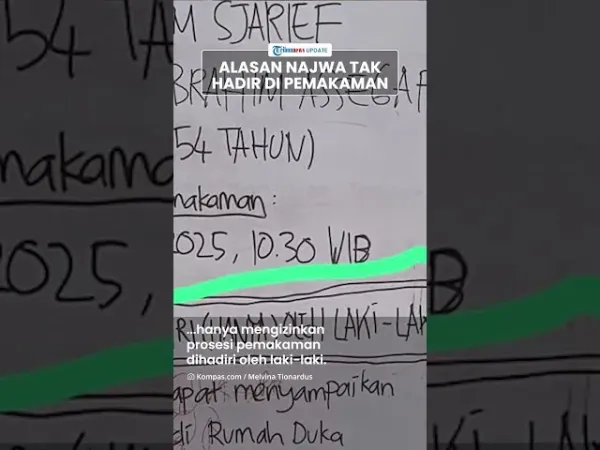 54 TA
M SJARIEF
Tribunnews UPDATE
ALASAN NAJWA TAK
HADIR DI PEMAKAMAN
BRAHIM ASSEGAF
54 TAHUN)
makaman:
2025, 10.30 WIB
LAKI-LAK
...hanya mengizinkan
prosesi pemakaman
dihadiri oleh laki-laki.
Kompas.com / Melvina Tionardus
apat menyampaikan
di Rumah Duka